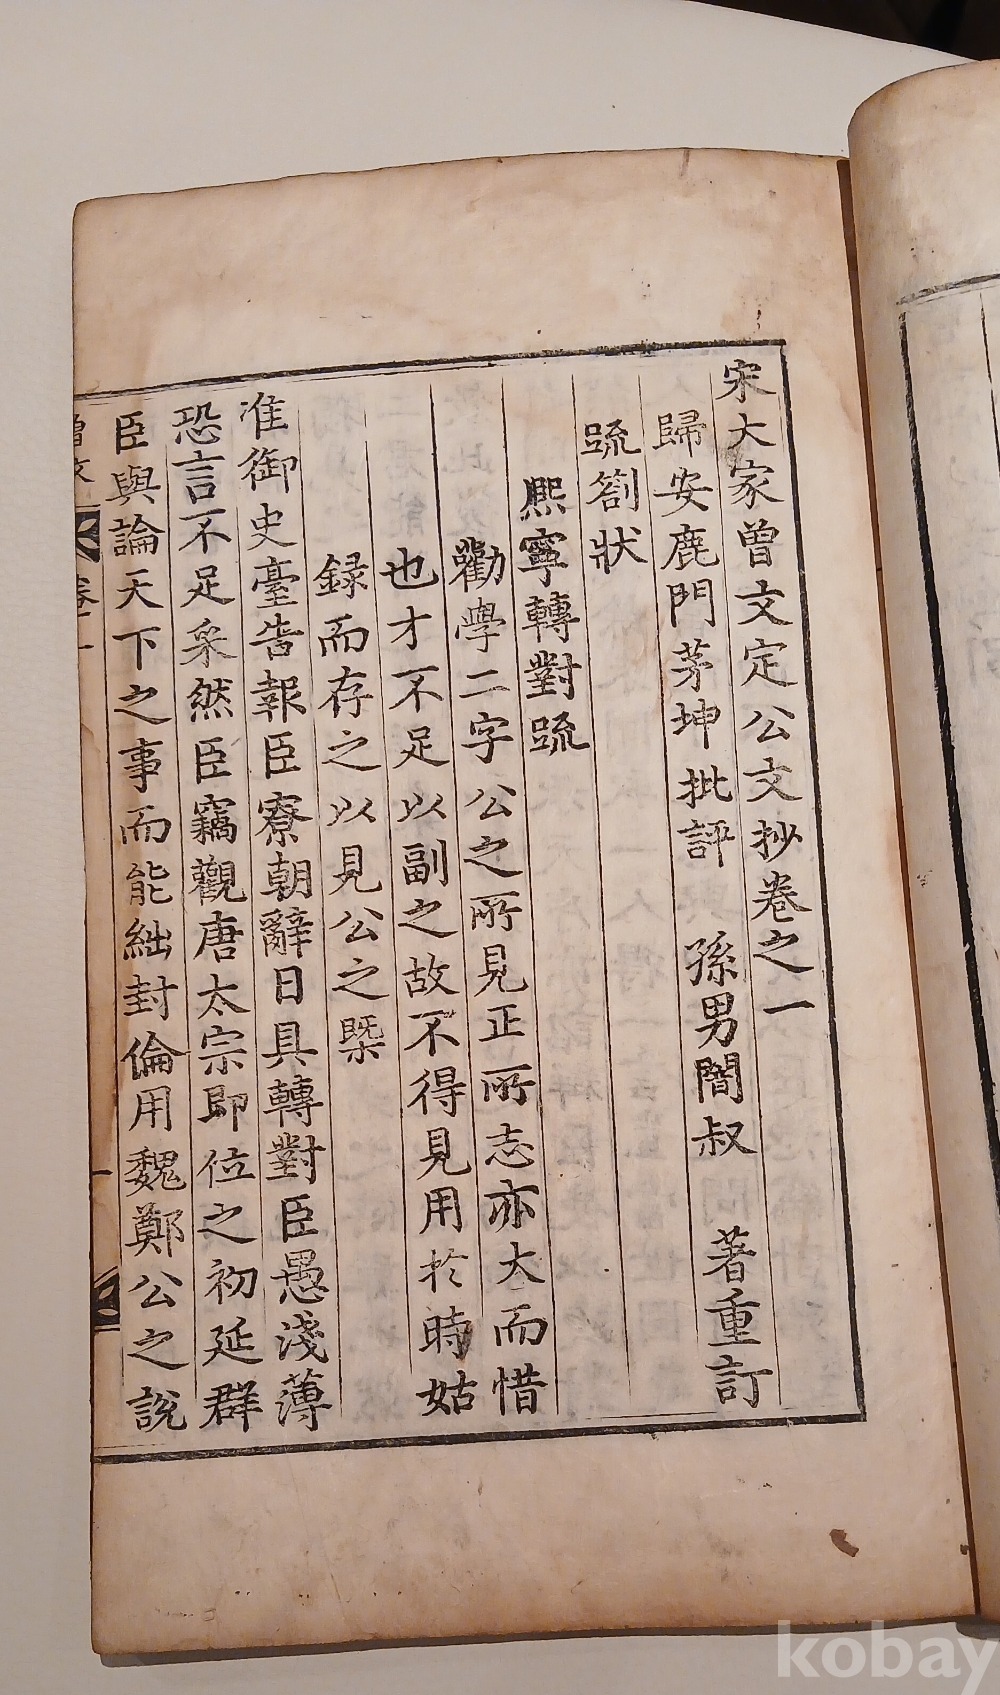 宋大家曾文定公文抄卷之一
歸安鹿門茅坤批評 孫男闇叔 著重訂
疏劄狀
熙寧轉對疏
勸學二字公之所見正所志亦大而惜
也才不足以副之故不得見用於時姑
録而存之以見公之槩
准御史臺告報臣寮朝辭日具轉對臣愚淺薄
恐言不足采然臣竊觀唐太宗即位之初延群
臣與論天下之事而能絀封倫用魏鄭公之說
曾文 卷一
一
kobay